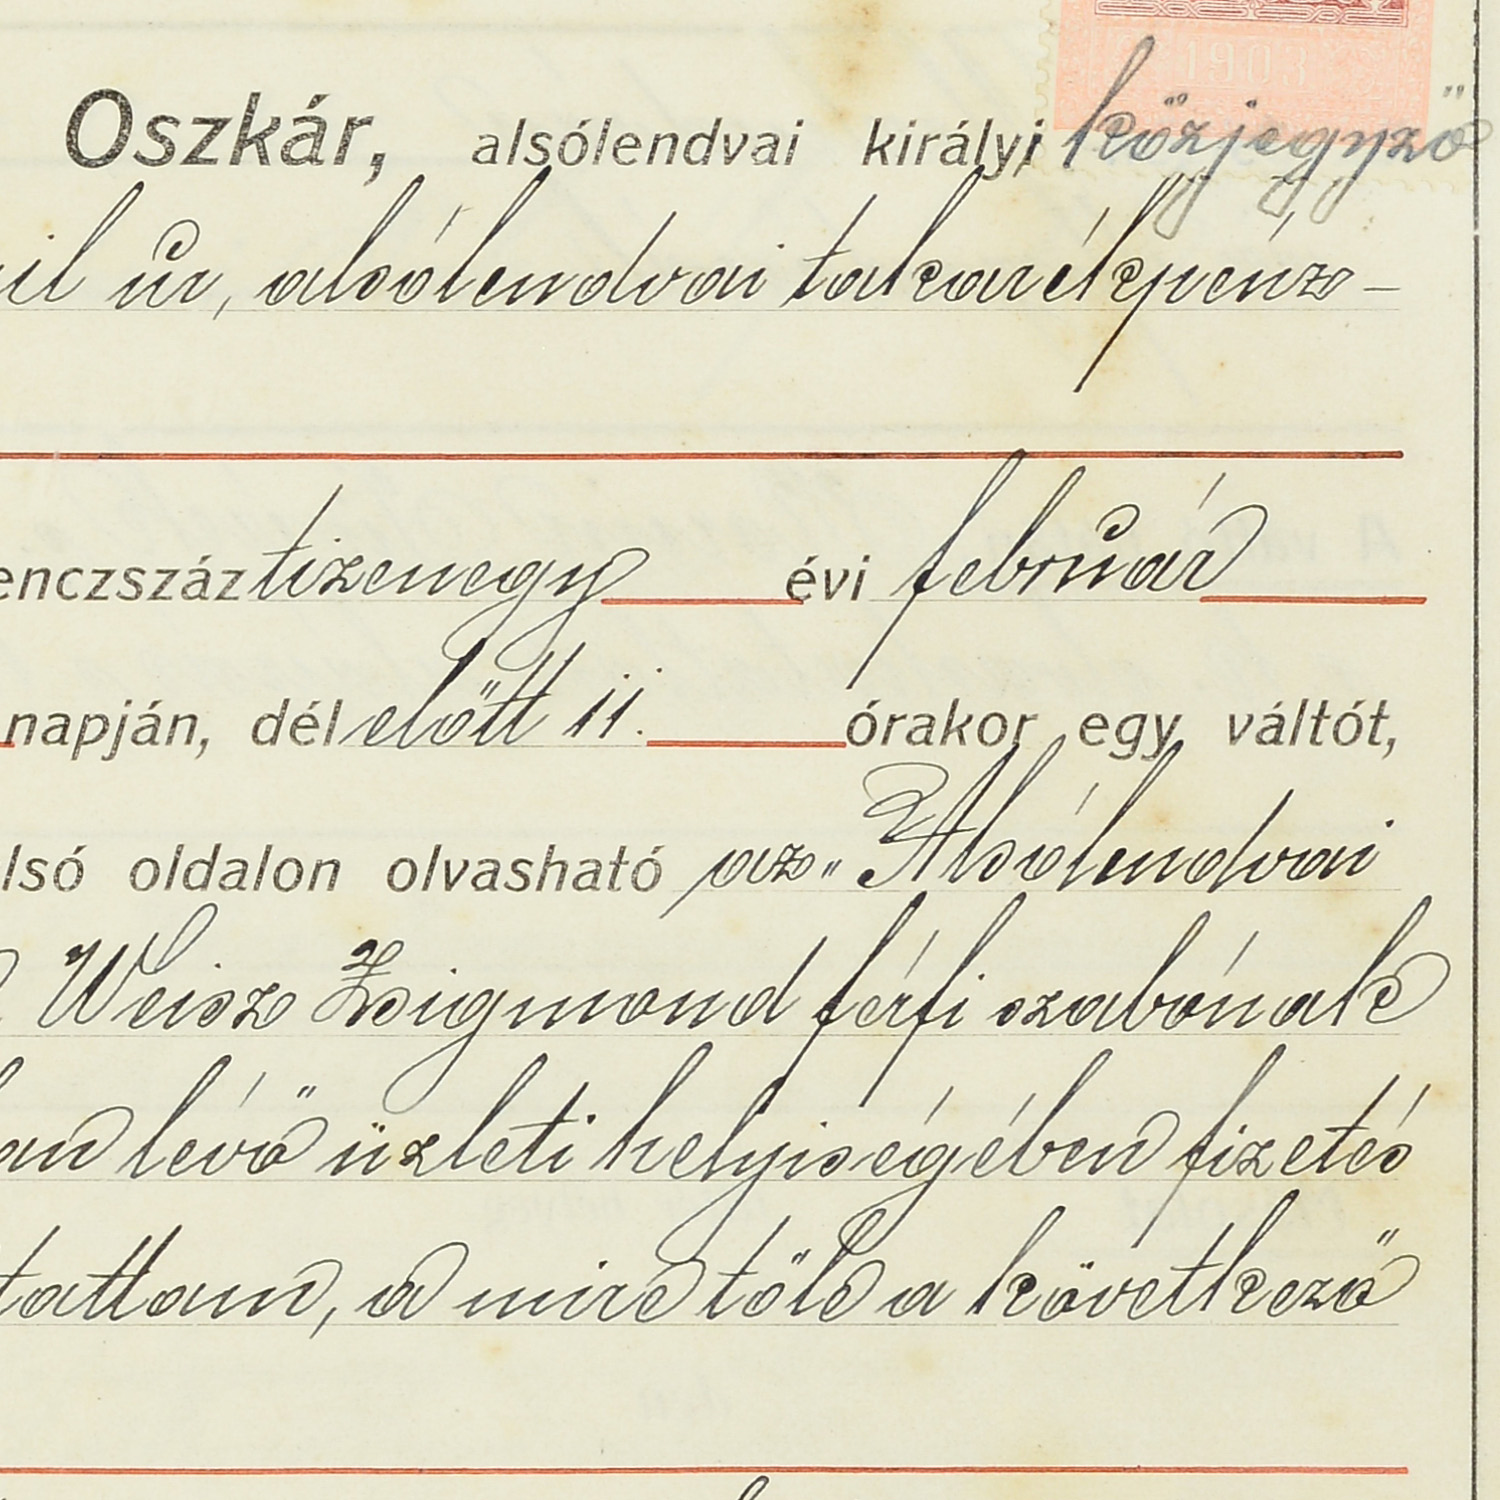 1903
Oszkár, alsólendvai királyi közjegyző
il úr, alsólendvai takarékpénz-
enczszáz tizenegy évi február
napján, délelőtt 11. órakor egy váltót,
lsó oldalon olvasható az „Alsólendvai
Weisz Zsigmond férfi szabónak
an lévő üzleti helyiségében fizetés
tattam, a mire tőle a következő